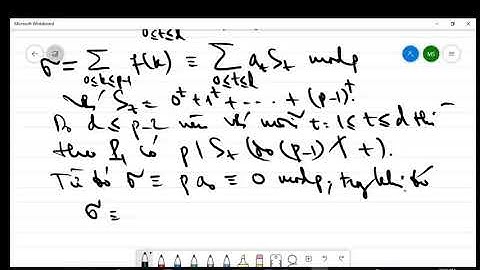 Microsoft Whiteboard
0≤t≤d
σ = ∑ f(k) ≡ ∑ a_t S_t mod p
0≤k≤p-1 0≤t≤d
với S_t = 0^t + 1^t + ... + (p-1)^t.
Do d ≤ p-2 nên với mỗi t: 1 ≤ t ≤ d thì
theo có p | S_t (do (p-1) ∤ t).
Từ đó σ ≡ p a_0 ≡ 0 mod p; trong khi đó
σ ≡
MS